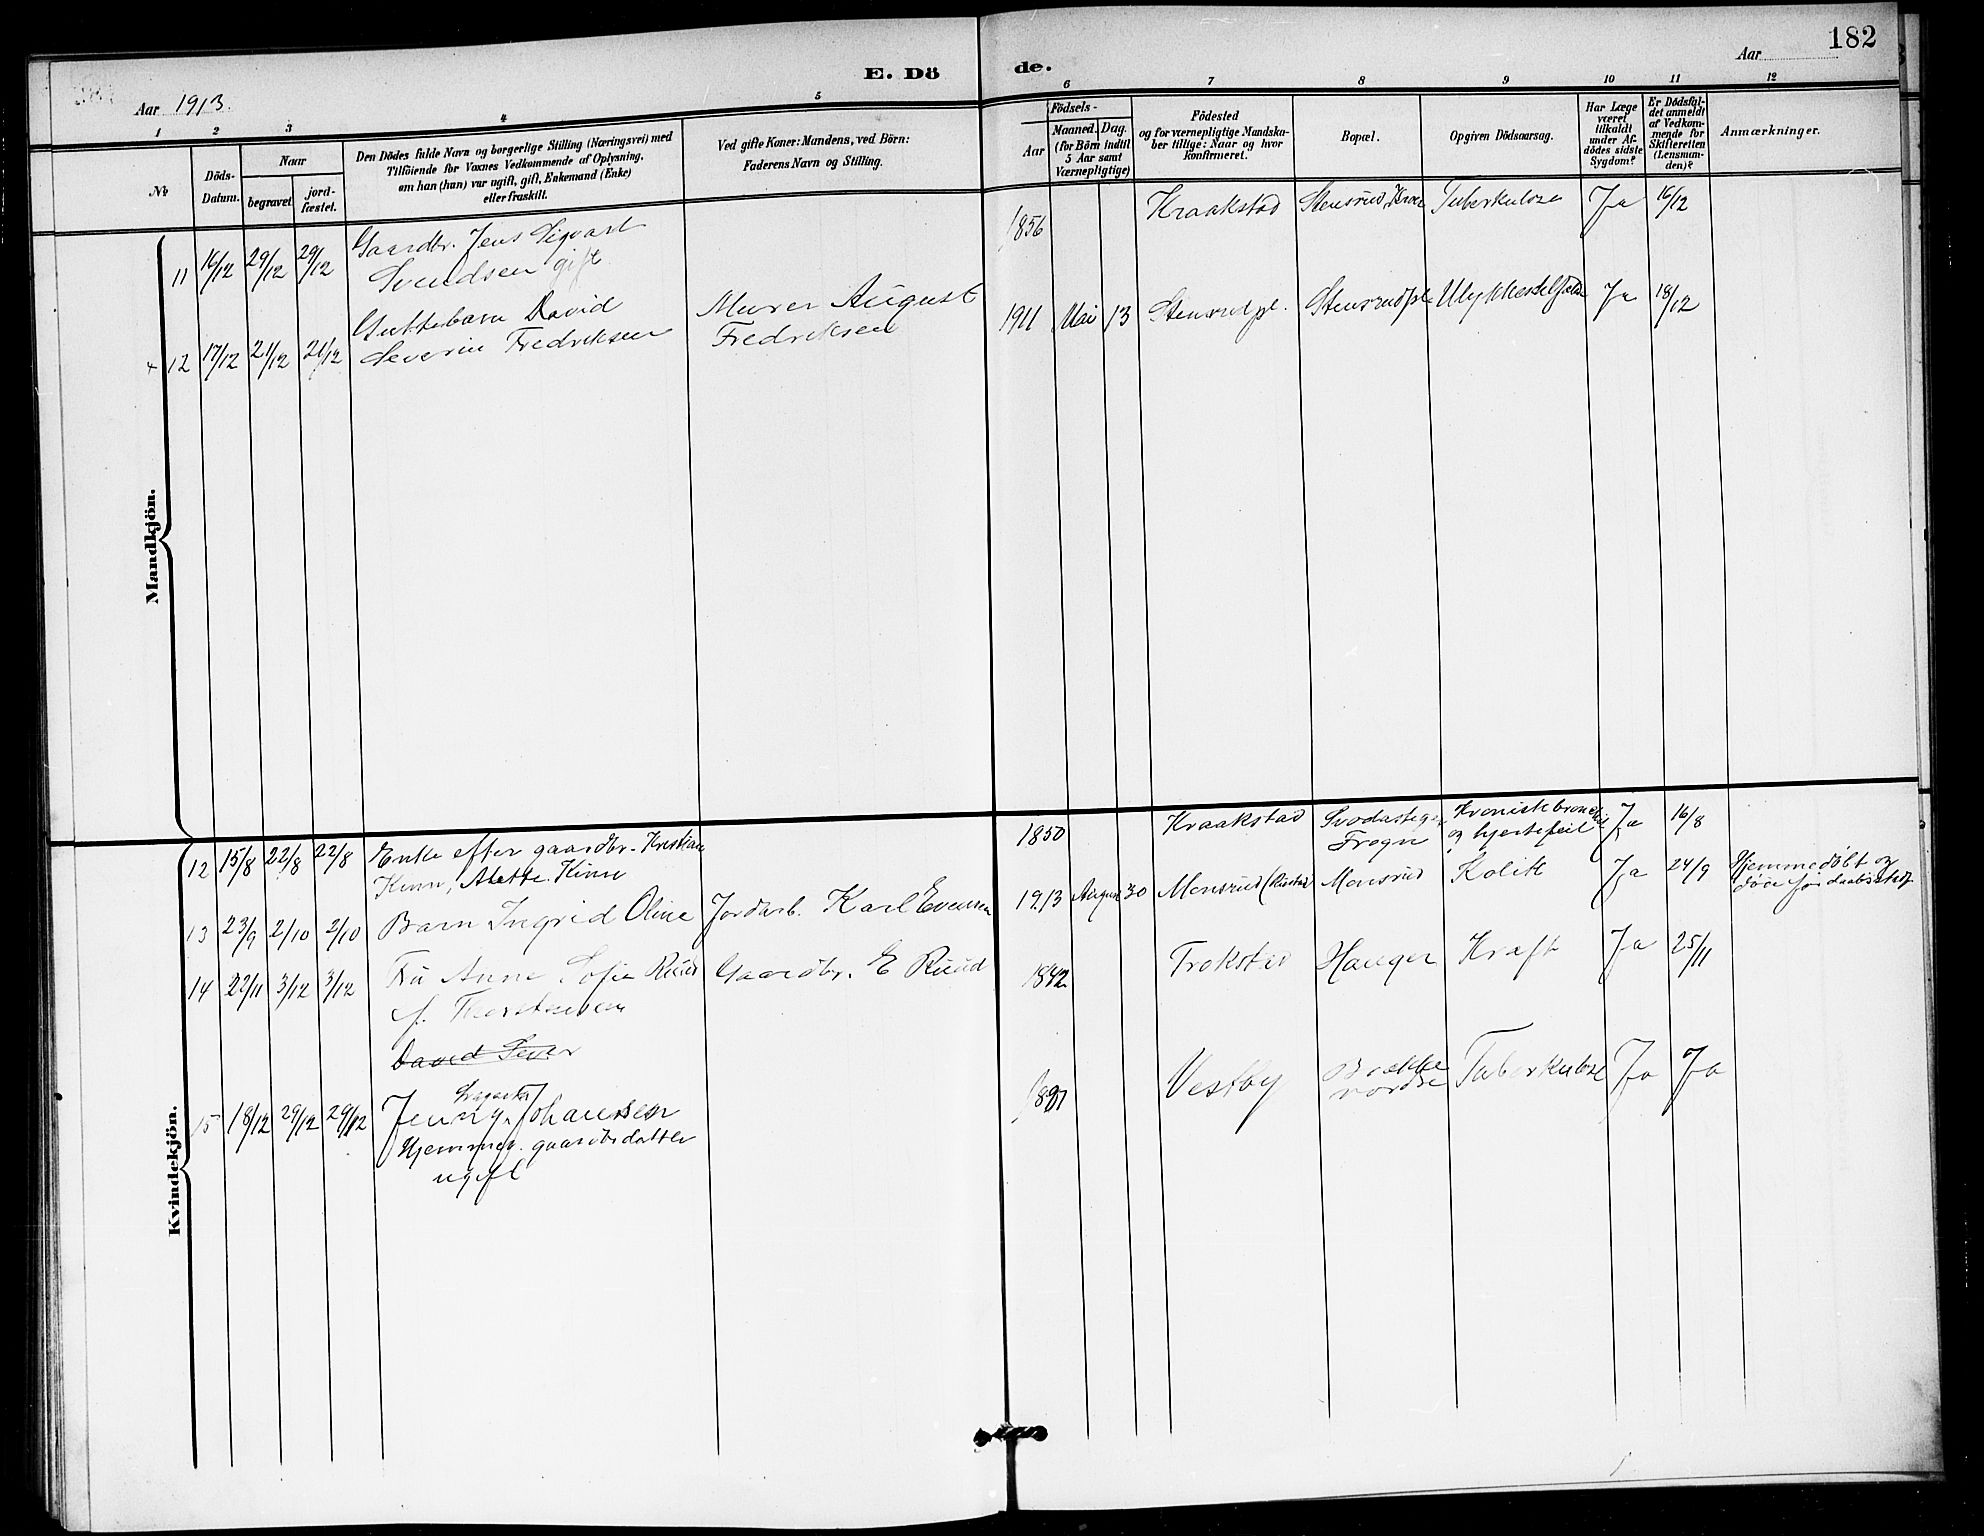 182
E. Dö de.
Aar 1913.
Aar
1 2 3 4 5 6 7 8 9 10 11 12
No
Döds-
Datum.
Naar
begravet.
jord-
fæstet.
Den Dödes fulde Navn og borgerlige Stilling (Næringsvei) med
Tilföiende for Voxnes Vedkommende af Oplysning,
om han (hun) var ugift, gift, Enkemand (Enke)
eller fraskilt.
Ved gifte Koner: Mandens, ved Börn:
Faderens Navn og Stilling.
Födsels-
Aar
Maaned. Dag.
(for Börn indtil
5 Aar samt
Værnepligtige)
Födested
og for værnepligtige Mandska-
ber tillige: Naar og hvor
konfirmeret.
Bopæl.
Opgiven Dödsaarsag.
Har Læge
været
tilkaldt
under Af-
dödes sidste
Sygdom?
Er Dödsfal-
det anmeldt
af Vedkom-
mende for
Skifteretten
(Lensman-
den)?
Anmærkninger.
Mandkjön.
11 16/12 29/12 29/12 Gaardbr. Jens Sigvart
Svendsen gift
1856 Kraakstad Stensrud, Tuberkulose Ja 16/12
12 17/12 21/12 21/12 Guttebarn David
Severin Fredriksen
Murer August
Fredriksen
1911 Mai 13 Stensrud pl. Stensrud pl. Ja 18/12
Kvindekjön.
12 15/8 22/8 22/8 Enke efter gaardbr. Kristian
Kinn, Alette Kinn
1850 Kraakstad
Frogn
Kronisk
og hjertefeil
Ja 16/8
13 23/9 2/10 2/10 Barn Ingrid Oline Jordarb. Karl Evensen
1913 August 30 Mensrud Mensrud Kolik Ja 24/9 Hjemmedöbt og
14 22/11 3/12 3/12 Fru Anne Sofie Ruud Gaardbr. E Ruud
f. Thorstensen
1842 Trøkstad Hauger Kræft Ja 25/11
David Sever
15 18/12 29/12 29/12 Jenny Johansen
Hjemmev. gaardbr datter
ugift
1891 Vestby Brække
nordre
Tuberkulose Ja Ja